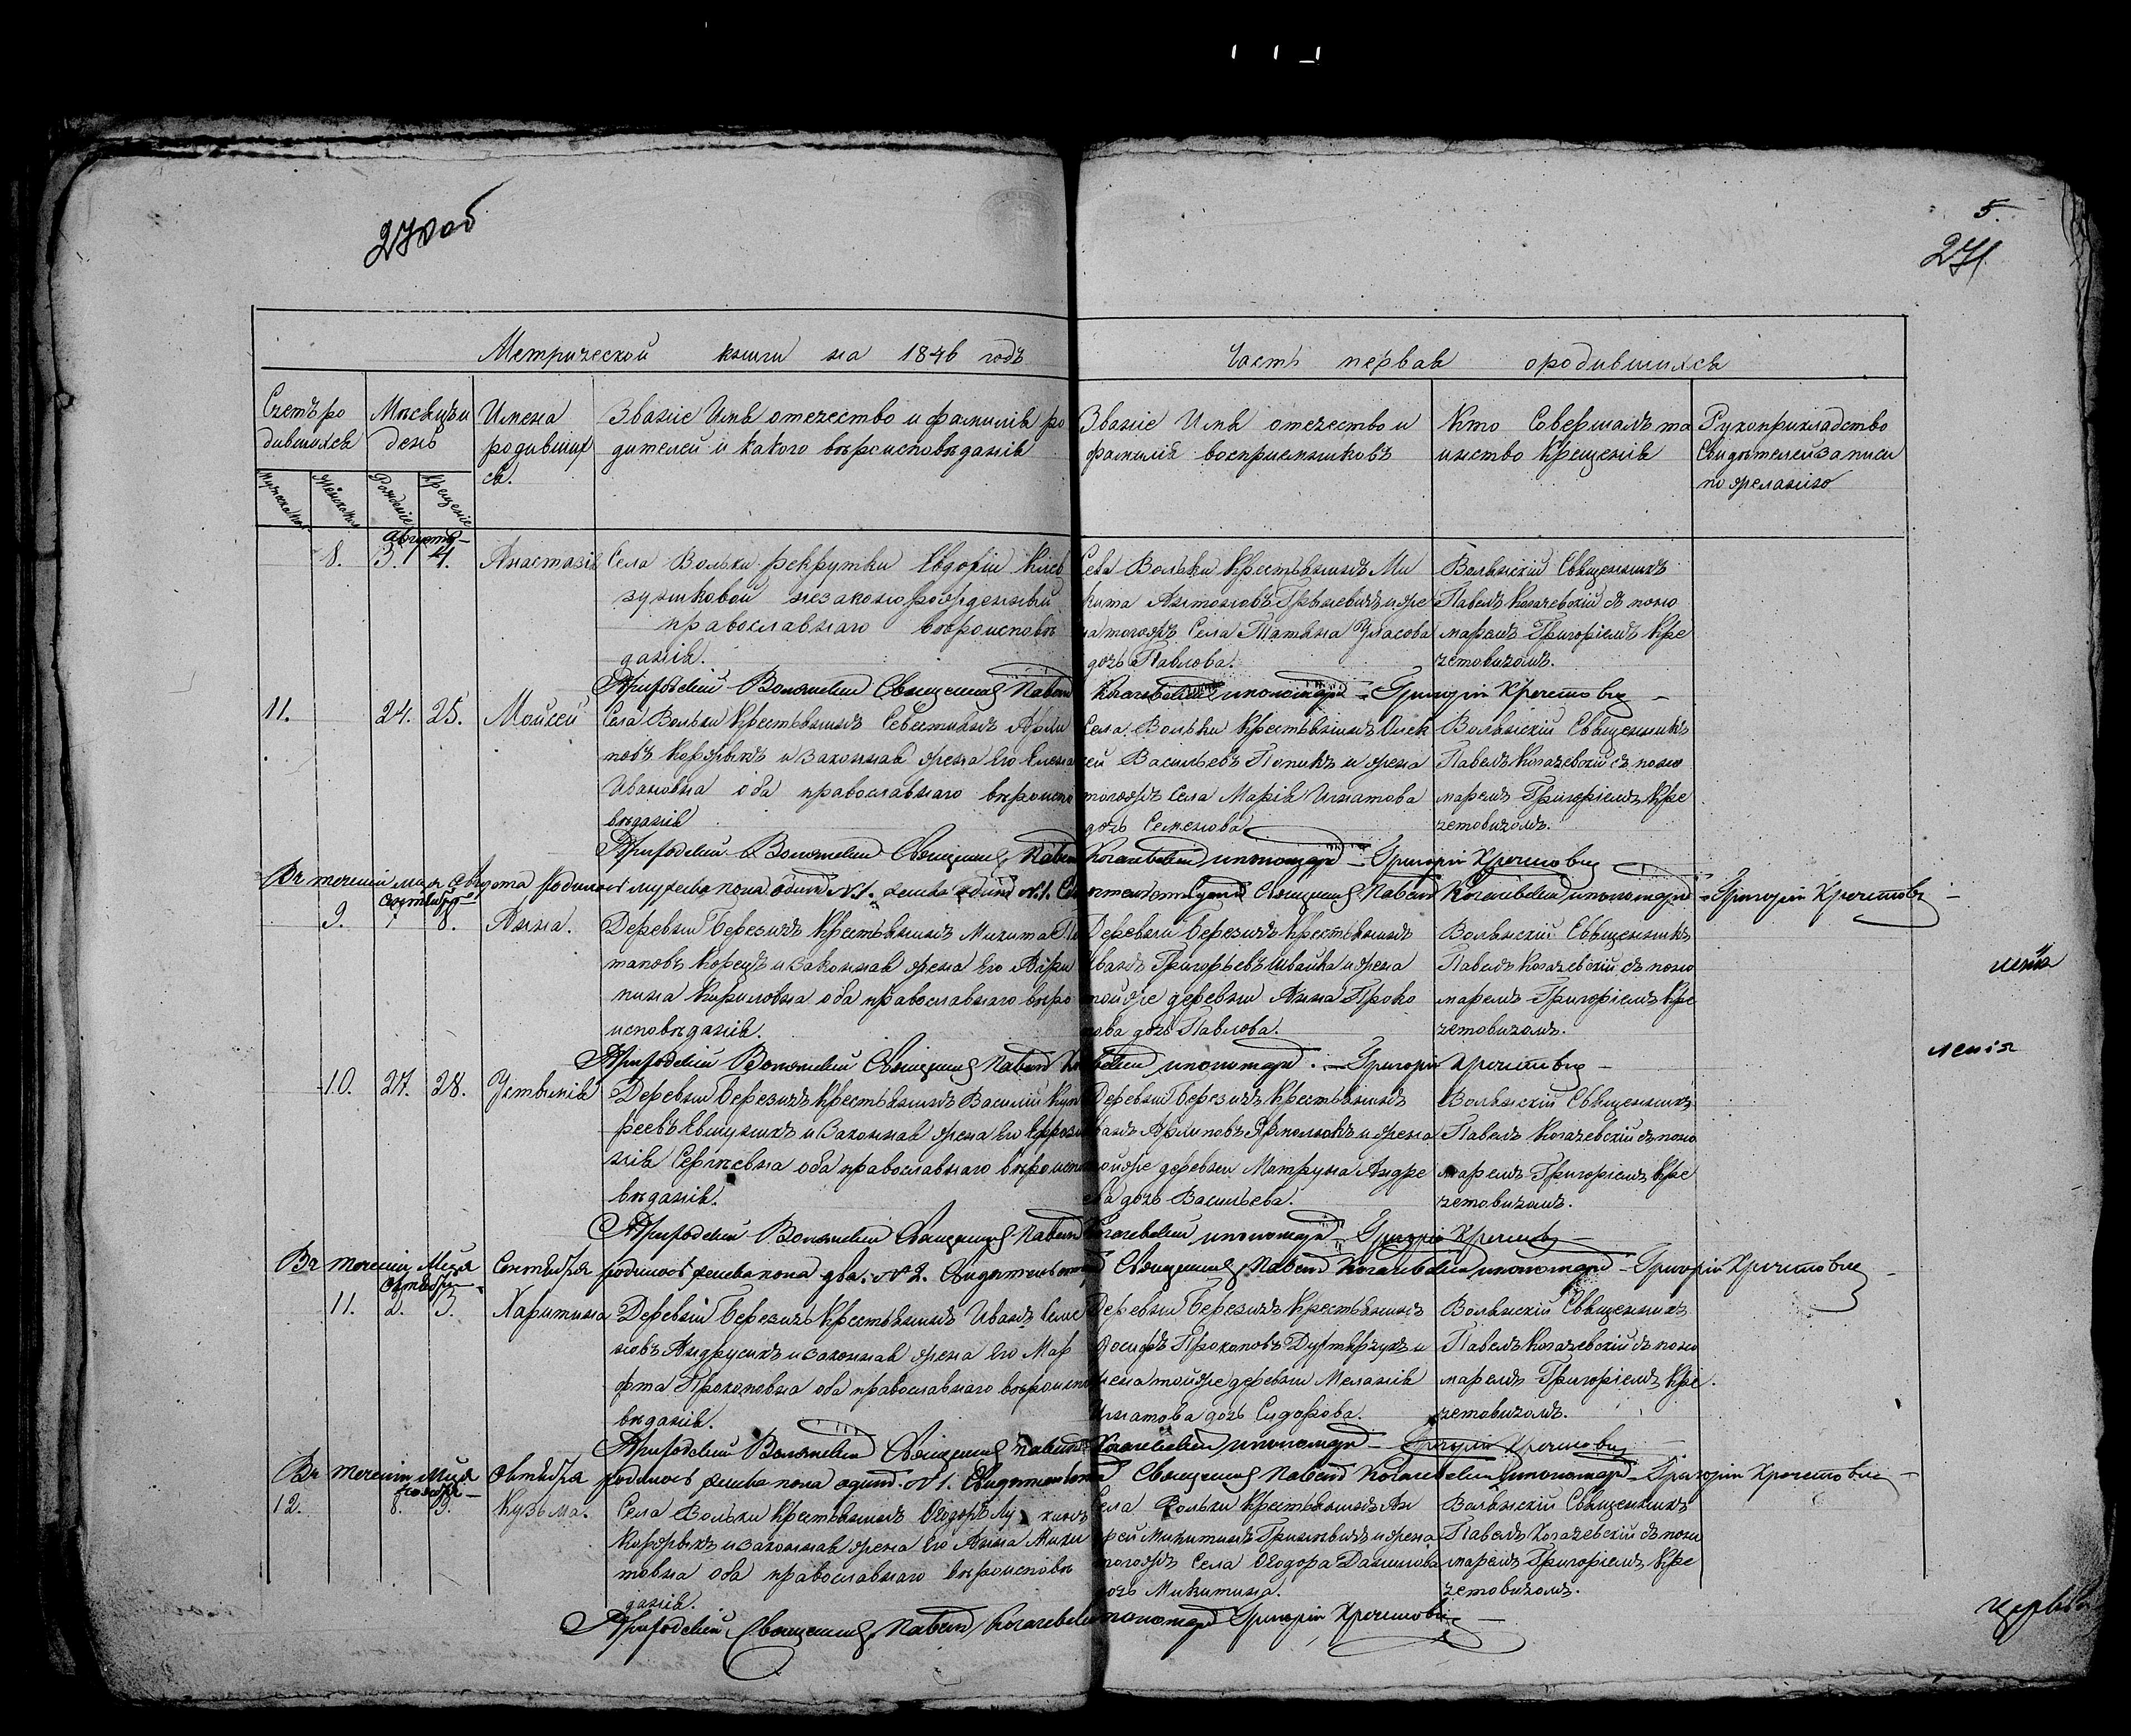 270 об
5.
271
Метрической книги на 1846 годъ
Часть первая о родившихся
Счетъ ро
дившихся
Мѣсяцъ и
день
Имена
родивших
ся.
Званіе Имя отечество и фамилія ро
дителей и какого вѣроисповѣданія
Званіе Имя отечество и
фамилія воспріемниковъ
Кто Совершалъ та
инство Крещенія
Рукоприкладство
Свидѣтелей записи
по желанію
Рожденіе
Крещеніе
Августъ
8. 3. 4. Анастазія
Села Вольки рекрутки Евдокіи
незаконорожденный
православнаго вѣроисповѣ
данія.
Села Вольки Крестьянинъ Ми
кита Антоновъ и же
на тогожъ Села Татьяна Уласова
дочь Павлова.
Вольянскій Священникъ
Павелъ Когачевскій съ поно
маремъ Григоріемъ Кре
четовичомъ.
Приходскій Волянскій Священникъ Павелъ Когачевскій пономарь Григорій Кречетовичъ
11. 24. 25. Мойсей
Села Вольки Крестьянинъ Севестіянъ
и законная жена его Елена
Ивановна оба православнаго вѣроиспо
вѣданія
Села Вольки Крестьянинъ Олек
сей Васильевъ Попикъ и жена
тогожъ Села Марія Игнатова
дочь Семенова
Вольянскій Священникъ
Павелъ Когачевскій съ поно
маремъ Григоріемъ Кре
четовичомъ.
Приходскій Волянскій Священникъ Павелъ Когачевскій пономарь Григорій Кречетовичъ
Въ теченіи мца Августа родилось мужеска пола одинъ №1. женска одинъ №1. Священникъ Павелъ Когачевскій пономарь Григорій Кречетовичъ
Сентября
9. 7 8. Анна.
Деревни Березичъ Крестьянинъ Микита По
таповъ Корецъ и законная жена его
Кириловна оба православнаго вѣро
исповѣданія.
Деревни Березичъ Крестьянинъ
Иванъ Григорьевъ Швайка и жена
тойже деревни Анна Проко
пова дочь Павлова.
Вольянскій Священникъ
Павелъ Когачевскій съ поно
маремъ Григоріемъ Кре
четовичомъ.
Приходскій Волянскій Священникъ Павелъ пономарь Григорій Кречетовичъ
10. 27. 28. Устинія
Деревни Березичъ Крестьянинъ Василій
и законная жена его
Сергіевна оба православнаго вѣроиспо
вѣданія.
Деревни Березичъ Крестьянинъ
и жена
тойже деревни Матруна Андре
ева дочь Васильева.
Вольянскій Священникъ
Павелъ Когачевскій съ поно
маремъ Григоріемъ Кре
четовичомъ.
Приходскій Волянскій Священникъ Павелъ Когачевскій пономарь Григорій Кречетовичъ
Въ теченіи Мца Сентября родилось женска пола два. №2. Священникъ Павелъ Когачевскій пономарь Григорій Кречетовичъ
Октября
11. 2. 3. Харитина
Деревни Березичъ Крестьянинъ Иванъ Семе
новъ Андрусикъ и законная жена его Мар
фта Прокоповна оба православнаго вѣроиспо
вѣданія.
Деревни Березичъ Крестьянинъ
Іосифъ Прокоповъ и
жена тойже деревни Меланія
Игнатова дочь Сидорова.
Вольянскій Священникъ
Павелъ Когачевскій съ поно
маремъ Григоріемъ Кре
четовичомъ.
Приходскій Волянскій Священникъ Павелъ Когачевскій пономарь Григорій Кречетовичъ
Въ теченіи Мца Октября родилось женска пола одинъ. №1. Священникъ Павелъ Когачевскій пономарь Григорій Кречетовичъ
Ноября
12. 8. 9. Кузьма.
Села Вольки Крестьянинъ
и законная жена его Анна Мики
товна оба православнаго вѣроисповѣ
данія.
Села Вольки Крестьянинъ Ан
дрей Микитинъ и жена
тогожъ Села Ѳеодора Данилова
дочь Микитина.
Вольянскій Священникъ
Павелъ Когачевскій съ поно
маремъ Григоріемъ Кре
четовичомъ.
Приходскій Священникъ Павелъ Когачевскій пономарь Григорій Кречетовичъ